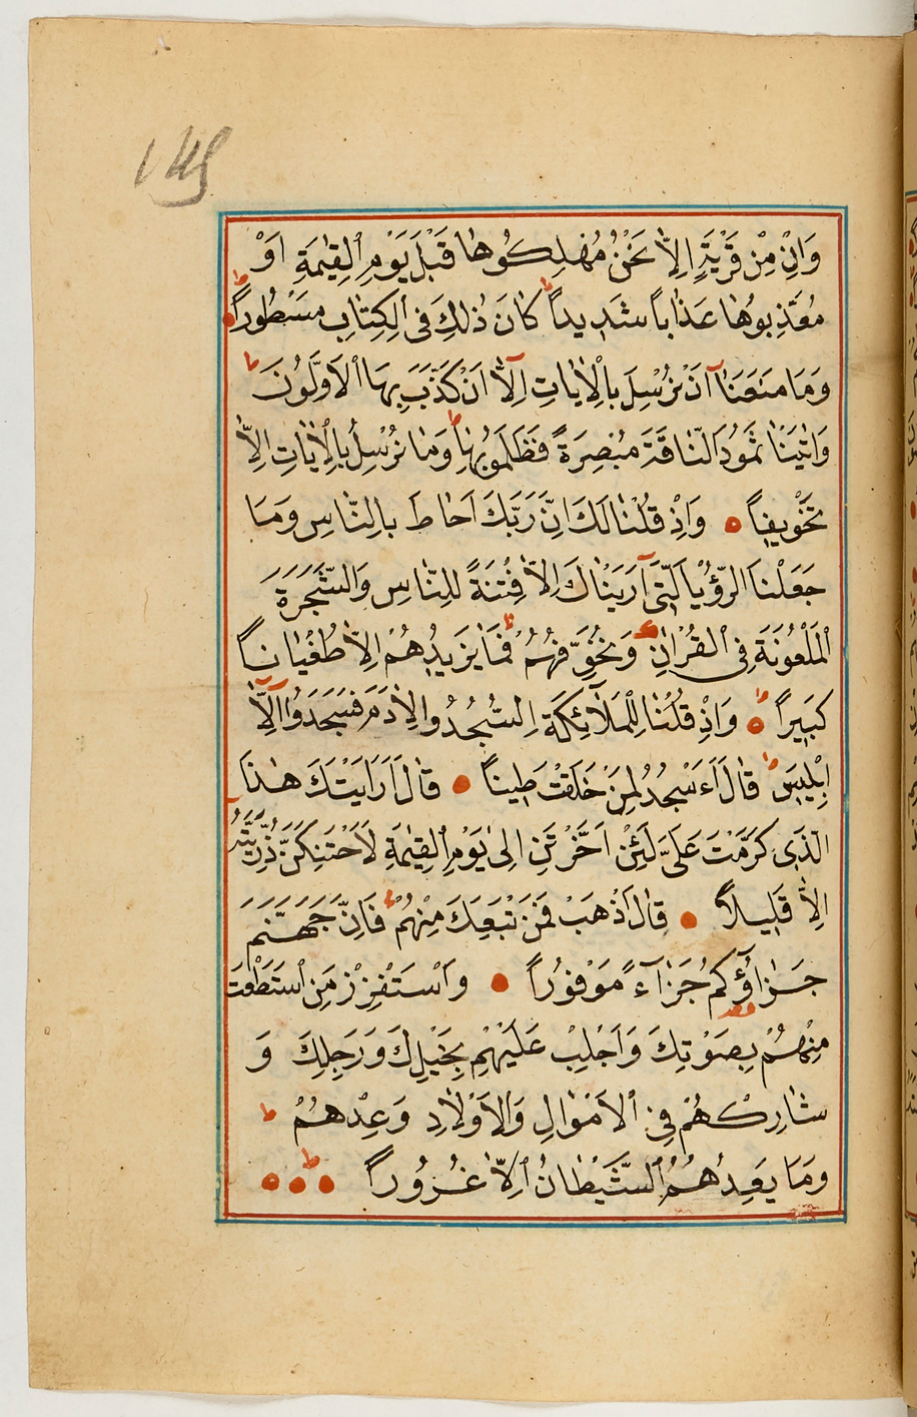 149
وَاِنْ مِنْ قَرْيَةٍ اِلَّا نَحْنُ مُهْلِكُوهَا قَبْلَ يَوْمِ الْقِيٰمَةِ اَوْ
مُعَذِّبُوهَا عَذَاباً شَدِيداً كَانَ ذٰلِكَ فِى الْكِتَابِ مَسْطُوراً
وَمَا مَنَعَنَا آنْ نُرْسِلَ بِالْاٰيَاتِ اِلَّا اَنْ كَذَّبَ بِهَا الْاَوَّلُونَ
وَاٰتَيْنَا ثَمُودَ النَّاقَةَ مُبْصِرَةً فَظَلَمُوا بِهَا وَمَا نُرْسِلُ بِالْاٰيَاتِ اِلَّا
تَخْوِيفاً وَاِذْ قُلْنَا لَكَ اِنَّ رَبَّكَ اَحَاطَ بِالنَّاسِ وَمَا
جَعَلْنَا الرُّؤْيَا الَّتِى آرَيْنَاكَ اِلَّا فِتْنَةً لِلنَّاسِ وَالشَّجَرَةَ
الْمَلْعُونَةَ فِى الْقُرْاٰنِ وَنُخَوِّفُهُمْ فَمَا يَزِيدُهُمْ اِلَّا طُغْيَاناً
كَبِيراً وَاِذْ قُلْنَا لِلْمَلَآئِكَةِ اسْجُدُوا لِاٰدَمَ فَسَجَدُوا اِلَّا
اِبْلِيسَ قَالَ ءَاَسْجُدُ لِمَنْ خَلَقْتَ طِيناً قَالَ اَرَاَيْتَكَ هٰذَا
الَّذِى كَرَّمْتَ عَلَىَّ لَئِنْ اَخَّرْتَنِ اِلٰى يَوْمِ الْقِيٰمَةِ لَاَحْتَنِكَنَّ ذُرِّيَّتَهُ
اِلَّا قَلِيلاً قَالَ اذْهَبْ فَمَنْ تَبِعَكَ مِنْهُمْ فَاِنَّ جَهَنَّمَ
جَزَاؤُكُمْ جَزَآءً مَوْفُوراً وَاسْتَفْزِزْ مَنِ اسْتَطَعْتَ
مِنْهُمْ بِصَوْتِكَ وَاَجْلِبْ عَلَيْهِمْ بِخَيْلِكَ وَرَجِلِكَ وَ
شَارِكْهُمْ فِى الْاَمْوَالِ وَالْاَوْلَادِ وَعِدْهُمْ
وَمَا يَعِدُهُمُ الشَّيْطَانُ اِلَّا غُرُوراً